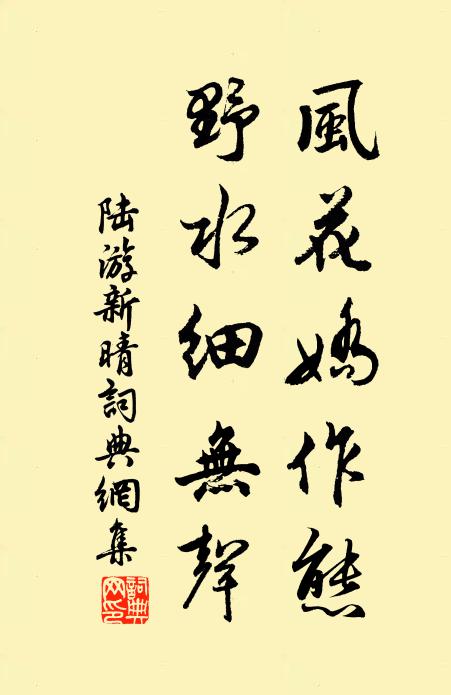 風花嬌作態
野水細無聲
陆游新晴詞典網集
詞典网印